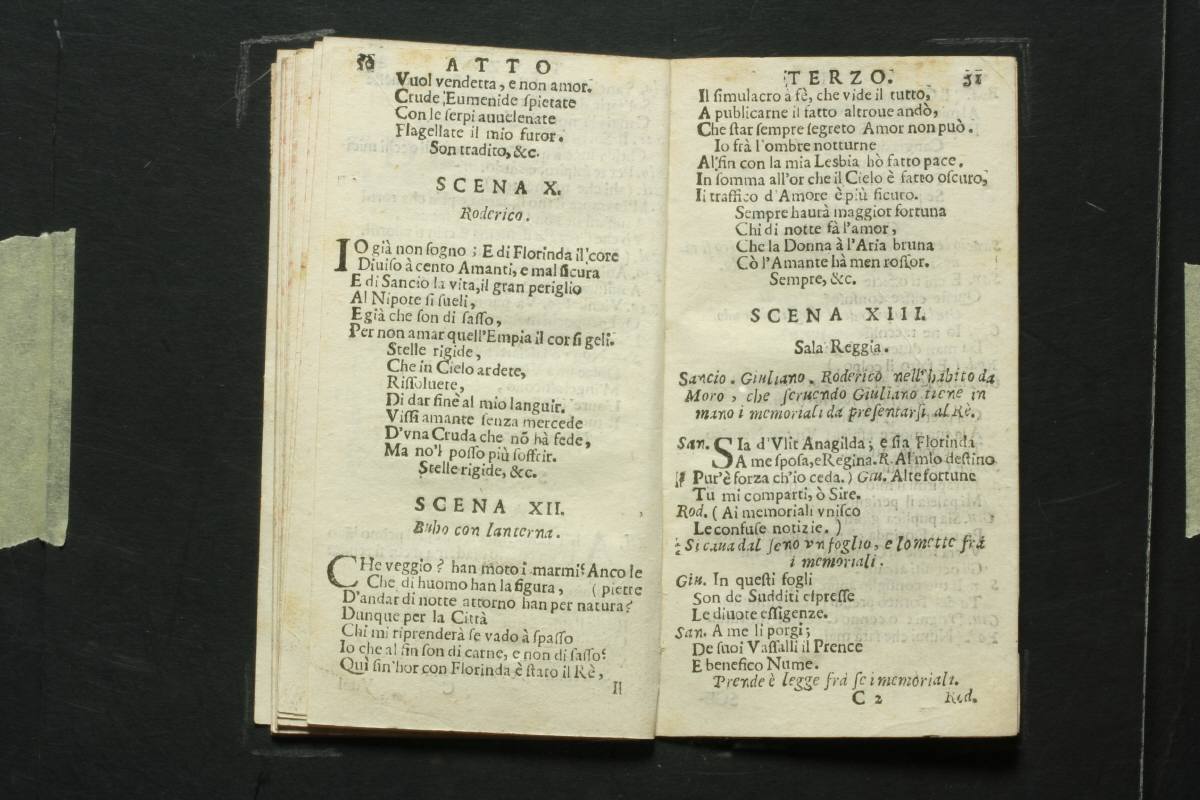 50 ATTO
Vuol vendetta, e non amor.
Crude Eumenide spietate
Con le serpi auuelenate
Flagellate il mio furor.
Son tradito, &c.
SCENA X.
Roderico.
IO già non sogno; E di Florinda il core
Diuiso à cento Amanti, e mal sicura
E di Sancio la vita, il gran periglio
Al Nipote si sueli,
E già che son di sasso,
Per non amar quell'Empia il cor si geli.
Stelle rigide,
Che in Cielo ardete,
Rissoluete,
Di dar finè al mio languir.
Vissi amante senza mercede
D'vna Cruda che nõ hà fede,
Ma no'l posso più soffrir.
Stelle rigide, &c.
SCENA XII.
Bubo con lanterna.
CHe veggio? han moto i marmi? Anco le
Che di huomo han la figura, (pietre
D'andar di notte attorno han per natura?
Dunque per la Città
Chi mi riprenderà se vado à spasso
Io che al fin son di carne, e non di sasso?
Quì sin'hor con Florinda è stato il Rè,
Il
TERZO. 51
Il simulacro à fè, che vide il tutto,
A publicarne il fatto altroue andò,
Che star sempre segreto Amor non può.
Io frà l'ombre notturne
Al fin con la mia Lesbia hò fatto pace.
In somma all'or che il Cielo è fatto oscuro,
Il traffico d'Amore è più sicuro.
Sempre haurà maggior fortuna
Chi di notte fà l'amor,
Che la Donna à l'Aria bruna
Cò l'Amante hà men rossor.
Sempre, &c.
SCENA XIII.
Sala Reggia.
Sancio. Giuliano. Roderico nell'habito da
Moro, che seruendo Giuliano tiene in
mano i memoriali da presentarsi al Rè.
San. SIa d'Vlit Anagilda; e sia Florinda
A me sposa, e Regina. R. Al mio destino
Pur'è forza ch'io ceda.) Giu. Alte fortune
Tu mi comparti, ò Sire.
Rod. (Ai memoriali vnisco
Le confuse notizie.)
Si caua dal seno vn foglio, e lo mette frà
i memoriali.
Giu. In questi fogli
Son de Sudditi espresse
Le diuote essigenze.
San. A me li porgi;
De suoi Vassalli il Prence
E benefico Nume.
Prende è legge frà se i memoriali.
C 2 Rod.